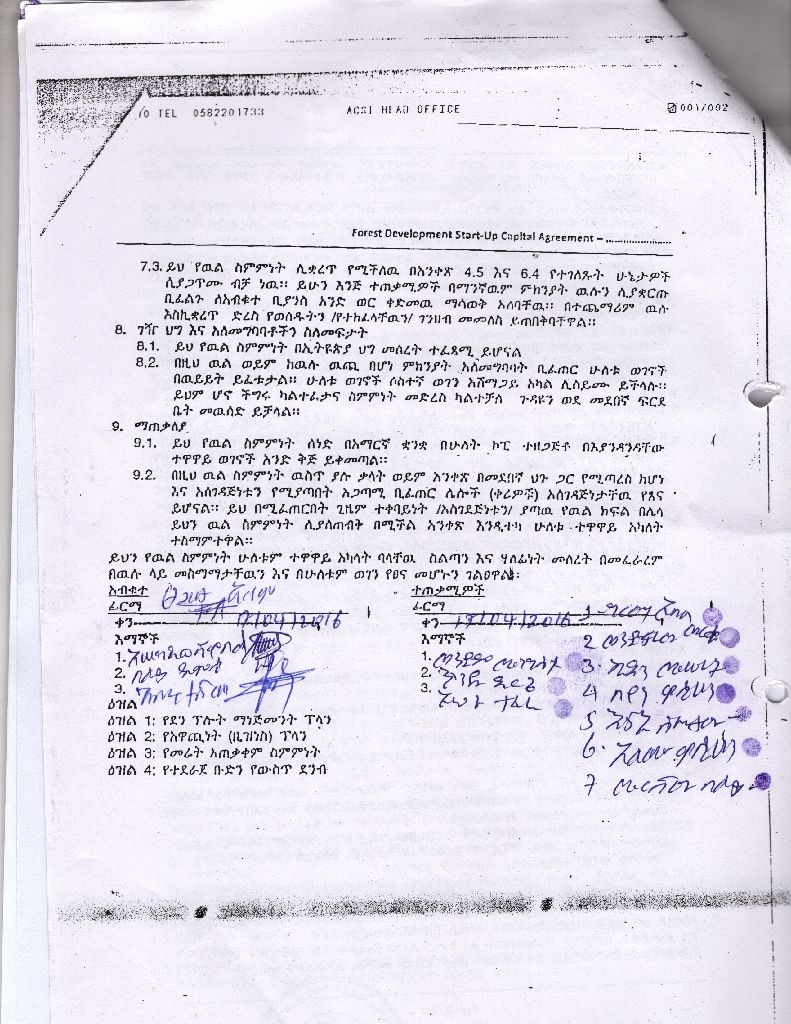 TO TEL 0582201733 ACSI HEAD OFFICE 001/002
Forest Development Start-Up Capital Agreement – ......................
7.3. ይህ የዉል ስምምነት ሊቋረጥ የሚችለዉ በአንቀጽ 4.5 እና 6.4 የተገለጹት ሁኔታዎች
ሲያጋጥሙ ብቻ ነዉ፡፡ ይሁን እንጅ ተጠቃሚዎች በማንኛዉም ምክንያት ዉሉን ሲያቋርጡ
ቢፈልጉ ለአብቁተ ቢያንስ አንድ ወር ቀድመዉ ማሳወቅ አለባቸዉ፡፡ በተጨማሪም ዉሉ
እስኪቋረጥ ድረስ የወሰዱትን /የተከፈላቸዉን/ ገንዘብ መመለስ ይጠበቅባቸዋል፡፡
8. ገዥ ህግ እና አለመግባባቶችን ስለመፍታት
8.1. ይህ የዉል ስምምነት በኢትዮጵያ ህግ መሰረት ተፈጻሚ ይሆናል
8.2. በዚህ ዉል ወይም ከዉሉ ዉጪ በሆነ ምክንያት አለመግባባት ቢፈጠር ሁለቱ ወገኖች
በዉይይት ይፈቱታል፡፡ ሁለቱ ወገኖች ሶስተኛ ወገን አሸማጋይ አካል ሊሰይሙ ይችላሉ፡፡
ይህም ሆኖ ችግሩ ካልተፈታና ስምምነት መድረስ ካልተቻለ ጉዳዩን ወደ መደበኛ ፍርድ
ቤት መዉሰድ ይቻላል፡፡
9. ማጠቃለያ
9.1. ይህ የዉል ስምምነት ሰነድ በአማርኛ ቋንቋ በሁለት ኮፒ ተዘጋጅቶ በእያንዳንዳቸው
ተዋዋይ ወገኖች አንድ ቅጅ ይቀመጣል፡፡
9.2. በዚህ ዉል ስምምነት ዉስጥ ያሉ ቃላት ወይም አንቀጽ በመደበኛ ህጉ ጋር የሚጣረስ ከሆነ
እና አስገዳጅነቱን የሚያጣበት አጋጣሚ ቢፈጠር ሌሎች (ቀሪዎቹ) አስገዳጅነታቸዉ የጸና
ይሆናል፡፡ ይህ በሚፈጠርበት ጊዜም ተቀባይነት /አስገደጅነቱን/ ያጣዉ የዉል ክፍል በሌላ
ይህን ዉል ስምምነት ሊያስጠብቅ በሚችል አንቀጽ እንዲተካ ሁለቱ ተዋዋይ አካላት
ተስማምተዋል፡፡
ይህን የዉል ስምምነት ሁለቱም ተዋዋይ አካላት ባላቸዉ ስልጣን እና ሃላፊነት መሰረት በመፈራረም
በዉሉ ላይ መስማማታቸዉን እና በሁለቱም ወገን የፀና መሆኑን ገልፀዋል፡
አብቁተ ተጠቃሚዎች
ፊርማ ፊርማ
ቀን 17/04/2016 ቀን 17/04/2016
እማኞች እማኞች
1. 1.
2. 2.
3. 3.
ዕዝል
ዕዝል 1: የደን ፕሎት ማነጅመንት ፕላን
ዕዝል 2: የአዋጪነት (ቢዝነስ) ፕላን
ዕዝል 3: የመሬት አጠቃቀም ስምምነት
ዕዝል 4: የተደራጀ ቡድን የውስጥ ደንብ
1
2
3.
4
5
6.
7